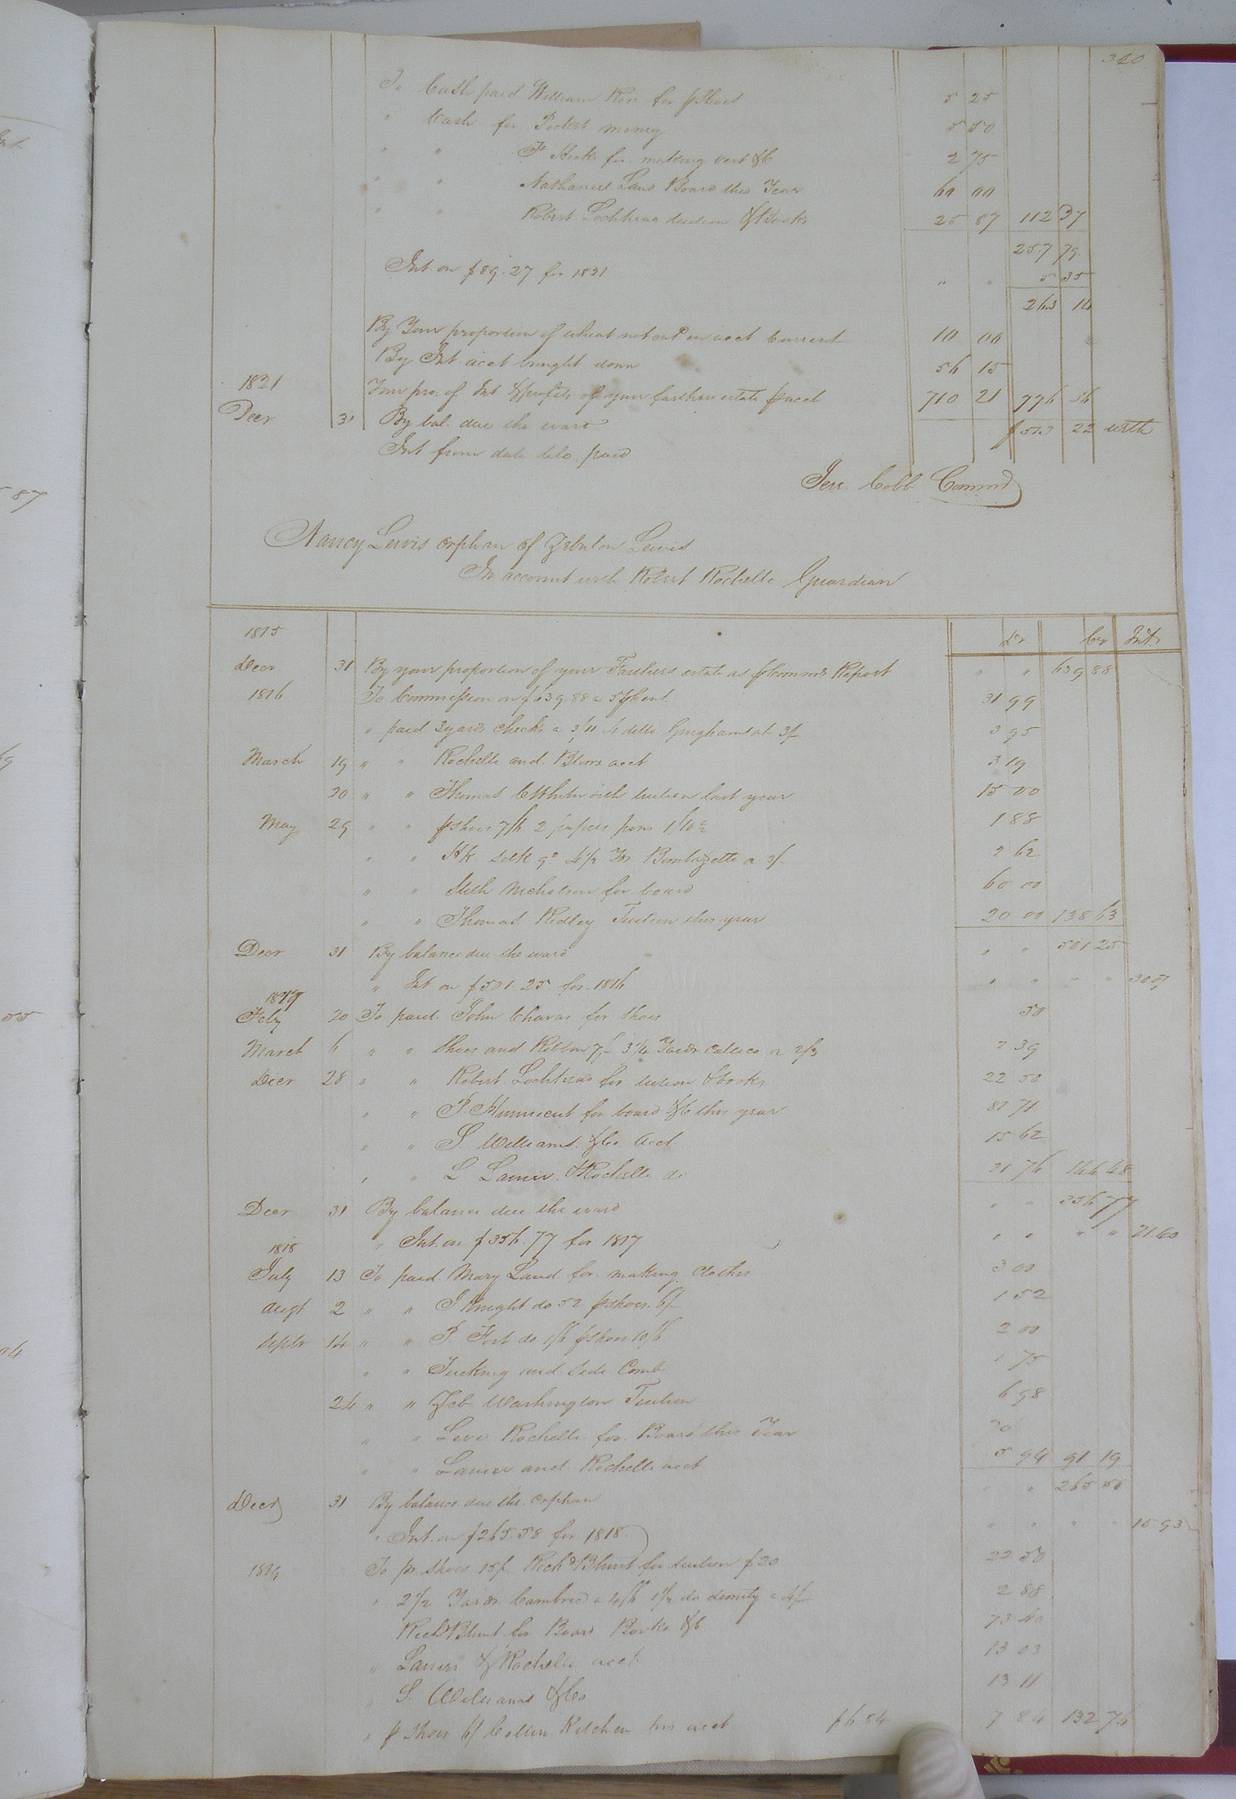 340
To Cash paid William Kerr for pshoes 5 25
" Cash for Pocket money 5 50
" " for making vest &c 2 75
" " Nathaniel Land Board this Year 60 00
" " Robert tuition & Books 25 87 112 37
257 79
Int. on $89.27 for 1821 " " 5 35
263 14
By Your proportion of wheat not in acct Current 10 00
By Int acct brought down 56 15
1821 Your pro. of Int & profits of your estate p acct 710 21 776 36
Decr 31 By bal. due the ward $513 22 with
Int from date till paid
Jere. Cobb Commr
Nancy Lewis orphan of Zebulon Lewis
In account with Robert Rochelle Guardian
1815 Dr Cr Int.
Decr 31 By your proportion of your Fathers estate as p Comms Report " " 639 88
1816 To Commission on $639.88 a 5 p Cent 31 99
" paid 3 yards checks a 3/11 ditto Gingham at 3/ 3 95
March 19 " " Rochelle and acct 3 19
20 " " Thomas tuition last year 15 00
May 29 " " pshoes 7/6 2 papers pins 1/10 1 88
" " Hk. Silk 9d Yds Bombazette a 3/ 2 62
" " Nicholson for board 60 00
" " Thomas Ridley Tuition this year 20 00 138 63
Decr 31 By balance due the ward " " 501 25
" Int on $501.25 for 1816 " " " " 30 07
1817
Feby 20 To paid John Chavas for shoes 50
March 6 " " Shoes and Ribbon 7/ 3 1/4 Yards Calico a 2/3 2 39
Decr 28 " " Robert for tuition & books 22 50
" " P. Hunnicut for board &c this year 81 71
" " S Williams & Co Acct 15 62
" " L Lanier & Rochelle do 21 76 144 48
Decr 31 By balance due the ward " " 356 77
1818 " Int. on $356.77 for 1817 " " " " 21 40
July 13 To paid Mary Land for making Clothes 3 00
Augt 2 " " J Knight do 52 pshoes 6/ 1 52
Septr 14 " " P. do 1/6 pshoes 10/6 2 00
" " and Side Comb 1 75
24 " " Washington Tuition 6 98
" " Levi Rochelle for Board this Year 70
" " Lanier and Rochelle acct 5 94 91 19
Decr 31 By balance due the orphan " " 265 58
" Int. on $265.58 for 1818 " " " " 15 93
1819 To pr shoes 15/ Richd Blunt for tuition $20 22 50
" 2 1/2 Yards Cambric a 4/6 1 1/2 do dimity a 4/ 2 88
Richd Blunt for Board Books &c 73 40
" Lanier & Rochelle acct 13 03
" S. Williams & Co 13 11
" p Shoes 6/ Kitchen his acct $6.84 7 84 132 76